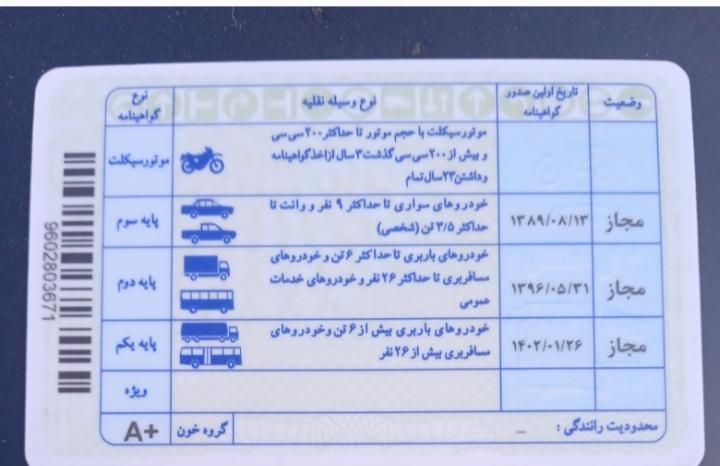 وضعیت
تاریخ اولین صدور
گواهینامه
نوع وسیله نقلیه
نوع
گواهینامه
موتورسیکلت با حجم موتور تا حداکثر ۲۰۰ سی سی
و بیش از ۲۰۰ سی سی گذشت ۳ سال از اخذ گواهینامه
و داشتن ۲۳ سال تمام
موتورسیکلت
مجاز
۱۳۸۹/۰۸/۱۳
خودروهای سواری تا حداکثر ۹ نفر و وانت تا
حداکثر ۳/۵ تن (شخصی)
پایه سوم
مجاز
۱۳۹۶/۰۵/۳۱
خودروهای باربری تا حداکثر ۶ تن و خودروهای
مسافربری تا حداکثر ۲۶ نفر و خودروهای خدمات
عمومی
پایه دوم
مجاز
۱۴۰۲/۰۱/۲۶
خودروهای باربری بیش از ۶ تن و خودروهای
مسافربری بیش از ۲۶ نفر
پایه یکم
ویژه
محدودیت رانندگی : _
گروه خون
A+
9602803671